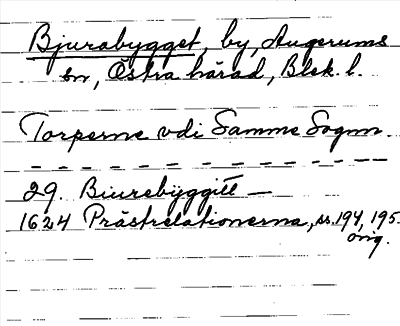 Bjurabygget, by, Augerums
sn, Östra härad, Blek. l.
Torperne udi Samme Sogn.
29. Biurebÿggitt —
1624 Prästrelationerna, ss. 194, 195.
orig.